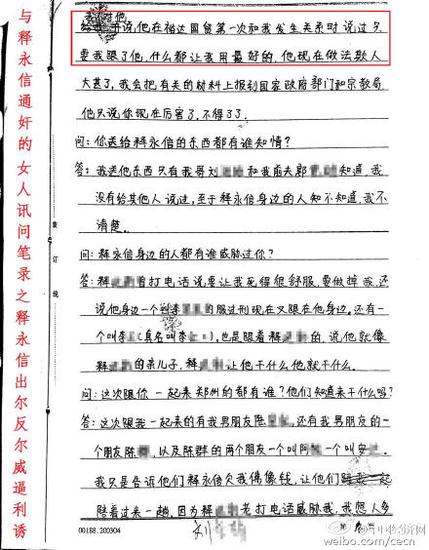 与释永信通奸的女人讯问笔录之释永信出尔反尔威逼利诱
说,他在裕达国贸第一次和我发生关系时说过只
要我跟了他,什么都让我用最好的,他现在做法欺人
大甚了,我会把有关的材料上报到国家政府部门和宗教局
他只说你现在厉害了,不得了了.
问:你送给释永信的东西都有谁知情?
答:我送他东西只有我哥刘 和我前夫郭 知道,我
没有给其他人说过,至于释永信身边的人知不知道,我不
清楚.
问:释永信身边的人都有谁威胁过你?
答:释 打电话说要让我死得很舒服,要做掉我,还
说他身边一个 的服过刑现在又跟在他身边,还有一
个叫李 (真名叫李 ),也是跟着释 的,说他就像
释 的亲儿子,释 让他干什么他就干什么.
问:这次跟你一起来郑州的都有谁?他们知道来干什么吗?
答:这次跟我一起来的有我男朋友陈 ,还有我男朋友的一
个朋友陈 ,以及陈群的两个朋友一个叫阿 一个叫安 .
我只是告诉他们释永信欠我佛像钱,让他们
陪着过来一趟,因为释 老打电话威胁我,我想人多
装订线
00188.200304
第 页
weibo.com/cecn